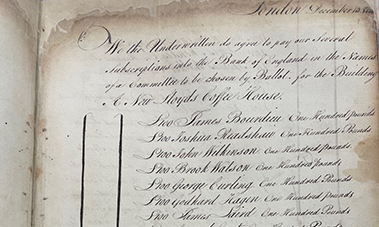 London December 13
We the Underwritten do agree to pay our Several
Subscriptions into the Bank of England in the Names
of a Committee to be chosen by Ballot, for the Building
A New Lloyds Coffe House.
£100 James Bourdieu One Hundred Pounds
£100 Joshua Readshaw One Hundred Pounds
£100 John Wilkinson One Hundred Pounds
£100 Brook Watson One Hundred Pounds
£100 George Curling One Hundred Pounds
£100 Godhard Hagen One Hundred Pounds
£100 James Laird One Hundred Pounds
One Hundred Pounds